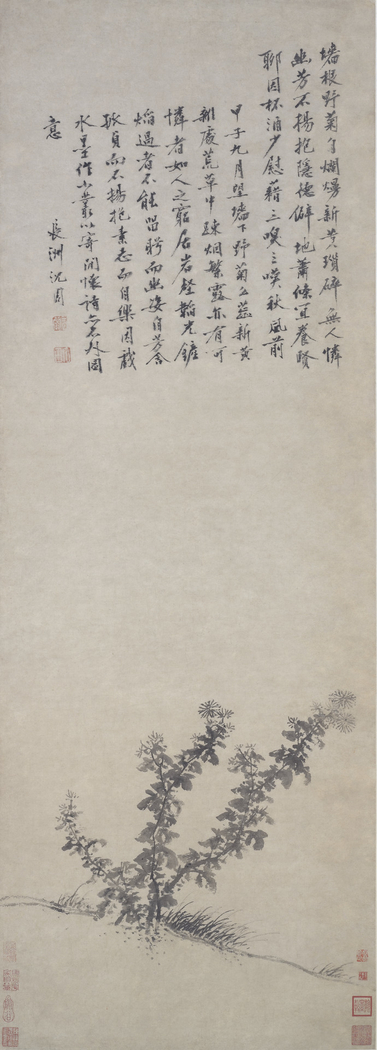 墻根野菊自爛熳新黃瑣碎無人憐
幽芳不揚抱隱德僻地蕭條宜養賢
聊因杯酒少慰藉三嗅三嘆秋風前
甲子九月望墻下野菊蕊新黃
雜廢荒草中疎烟繁露亦有可
憐者如人之窮居岩壑韜光鏟
焰過者不能留眄而幽姿自芳含
貞而不揚抱素志而自樂因戲
水墨作小叢以寄閒懷詩亦圖
意
長洲沈周